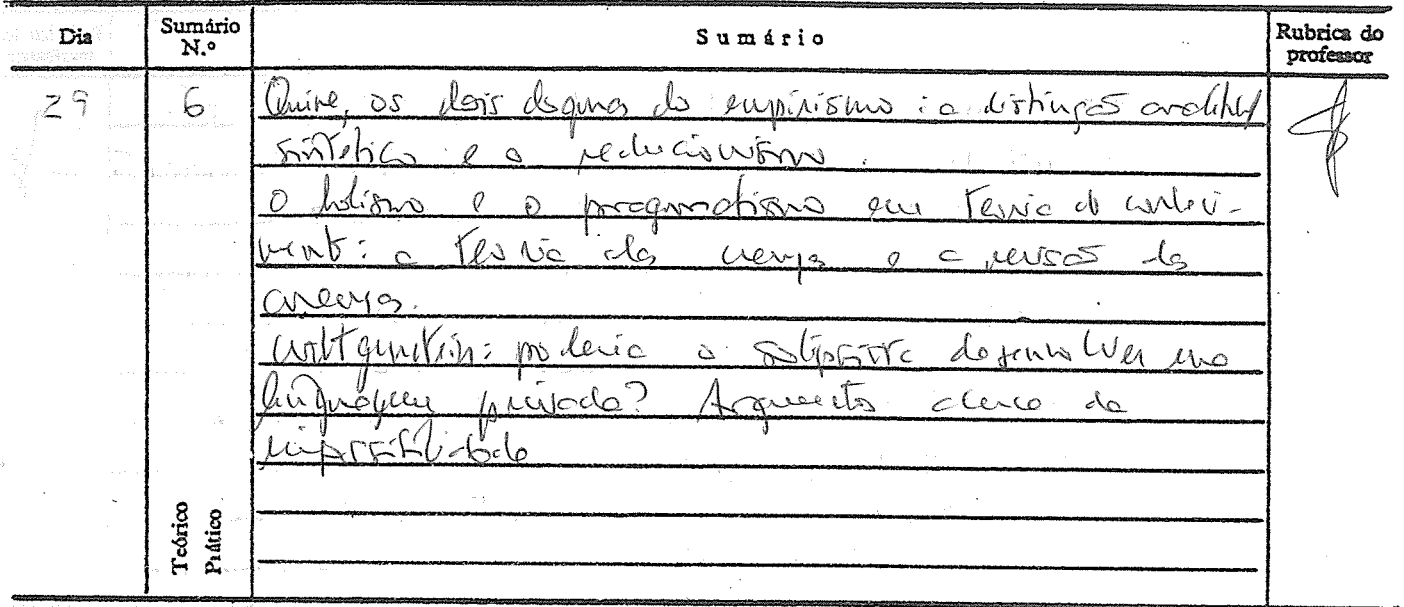 Dia
Sumário N.º
Sumário
Rubrica do professor
29
6
Quine, os dois dogmas do empirismo: a distinção analítico/
sintético e o reducionismo.
O holismo e o pragmatismo em teoria do conheci-
mento: a teoria da crença e a revisão da
crença.
Wittgenstein: poderia o solipsista desenvolver uma
linguagem privada? Argumento acerca da
impossibilidade
Teórico
Prático